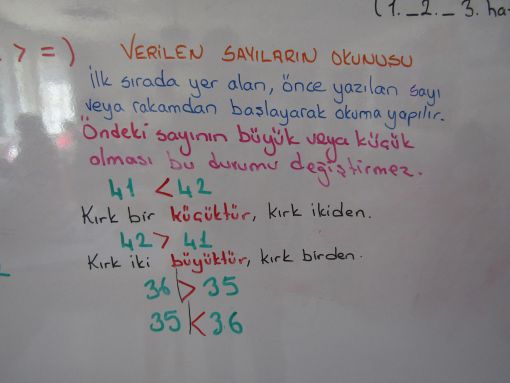 (1._2._3. ha
> =) VERİLEN SAYILARIN OKUNUSU
İlk sırada yer alan, önce yazılan sayı
veya rakamdan başlayarak okuma yapılır.
Öndeki sayının büyük veya küçük
olması bu durumu değiştirmez.
41 < 42
Kırk bir küçüktür, kırk ikiden.
42 > 41
Kırk iki büyüktür, kırk birden.
36 > 35
35 < 36